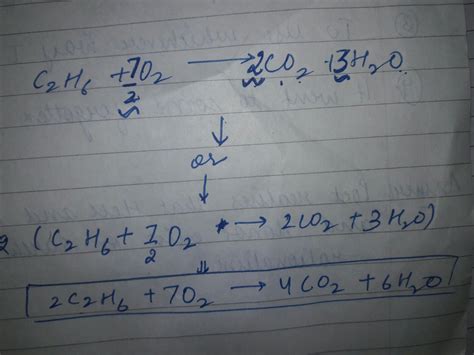 C₂H₆ + 7/2 O₂ → 2CO₂ + 3H₂O
or
2 (C₂H₆ + 7/2 O₂ → 2CO₂ + 3H₂O)
2C₂H₆ + 7O₂ → 4CO₂ + 6H₂O